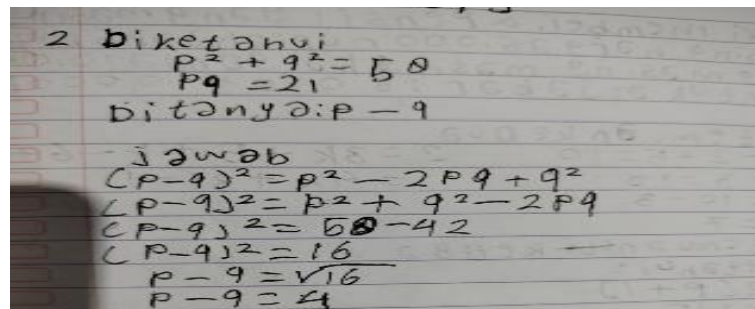 2 Diketahui
p² + q² = 58
pq = 21
Ditanya: p - q
- Jawab
(p-q)² = p² - 2pq + q²
(p-q)² = p² + q² - 2pq
(p-q)² = 58 - 42
(p-q)² = 16
p - q = √16
p - q = 4